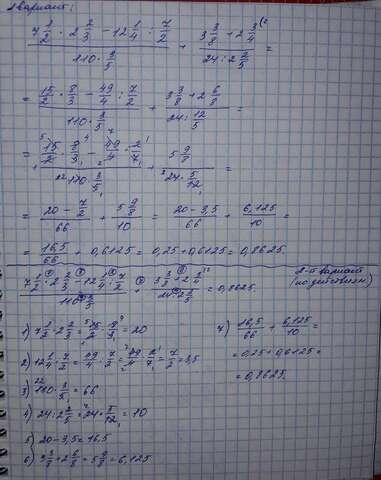 1 вариант:
7 1/2 · 2 2/3 − 12 1/4 : 7/2 / 110 · 3/5 + 3 3/8 + 2 3/4 / 24 : 2 2/5 =
= 15/2 · 8/3 − 49/4 : 7/2 / 110 · 3/5 + 3 3/8 + 2 6/8 / 24 : 12/5 =
= 15/2 · 8/3 − 49/4 · 2/7 / 110 · 3/5 + 5 9/8 / 24 · 5/12 =
= 20 − 7/2 / 66 + 5 9/8 / 10 = 20 − 3,5 / 66 + 6,125 / 10 =
= 16,5/66 + 0,6125 = 0,25 + 0,6125 = 0,8625.
2-й вариант
(по действиям)
7 1/2 · 2 2/3 − 12 1/4 : 7/2 / 110 · 3/5 + 3 3/8 + 2 3/4 / 24 : 2 2/5 = 0,8625.
1) 7 1/2 · 2 2/3 = 15/2 · 8/3 = 20
2) 12 1/4 : 7/2 = 49/4 : 7/2 = 49/4 · 2/7 = 7/2 = 3,5
3) 110 · 3/5 = 66
4) 24 : 2 2/5 = 24 · 5/12 = 10
5) 20 − 3,5 = 16,5
6) 3 3/8 + 2 6/8 = 5 9/8 = 6,125
7) 16,5/66 + 6,125/10 =
= 0,25 + 0,6125 =
= 0,8625.